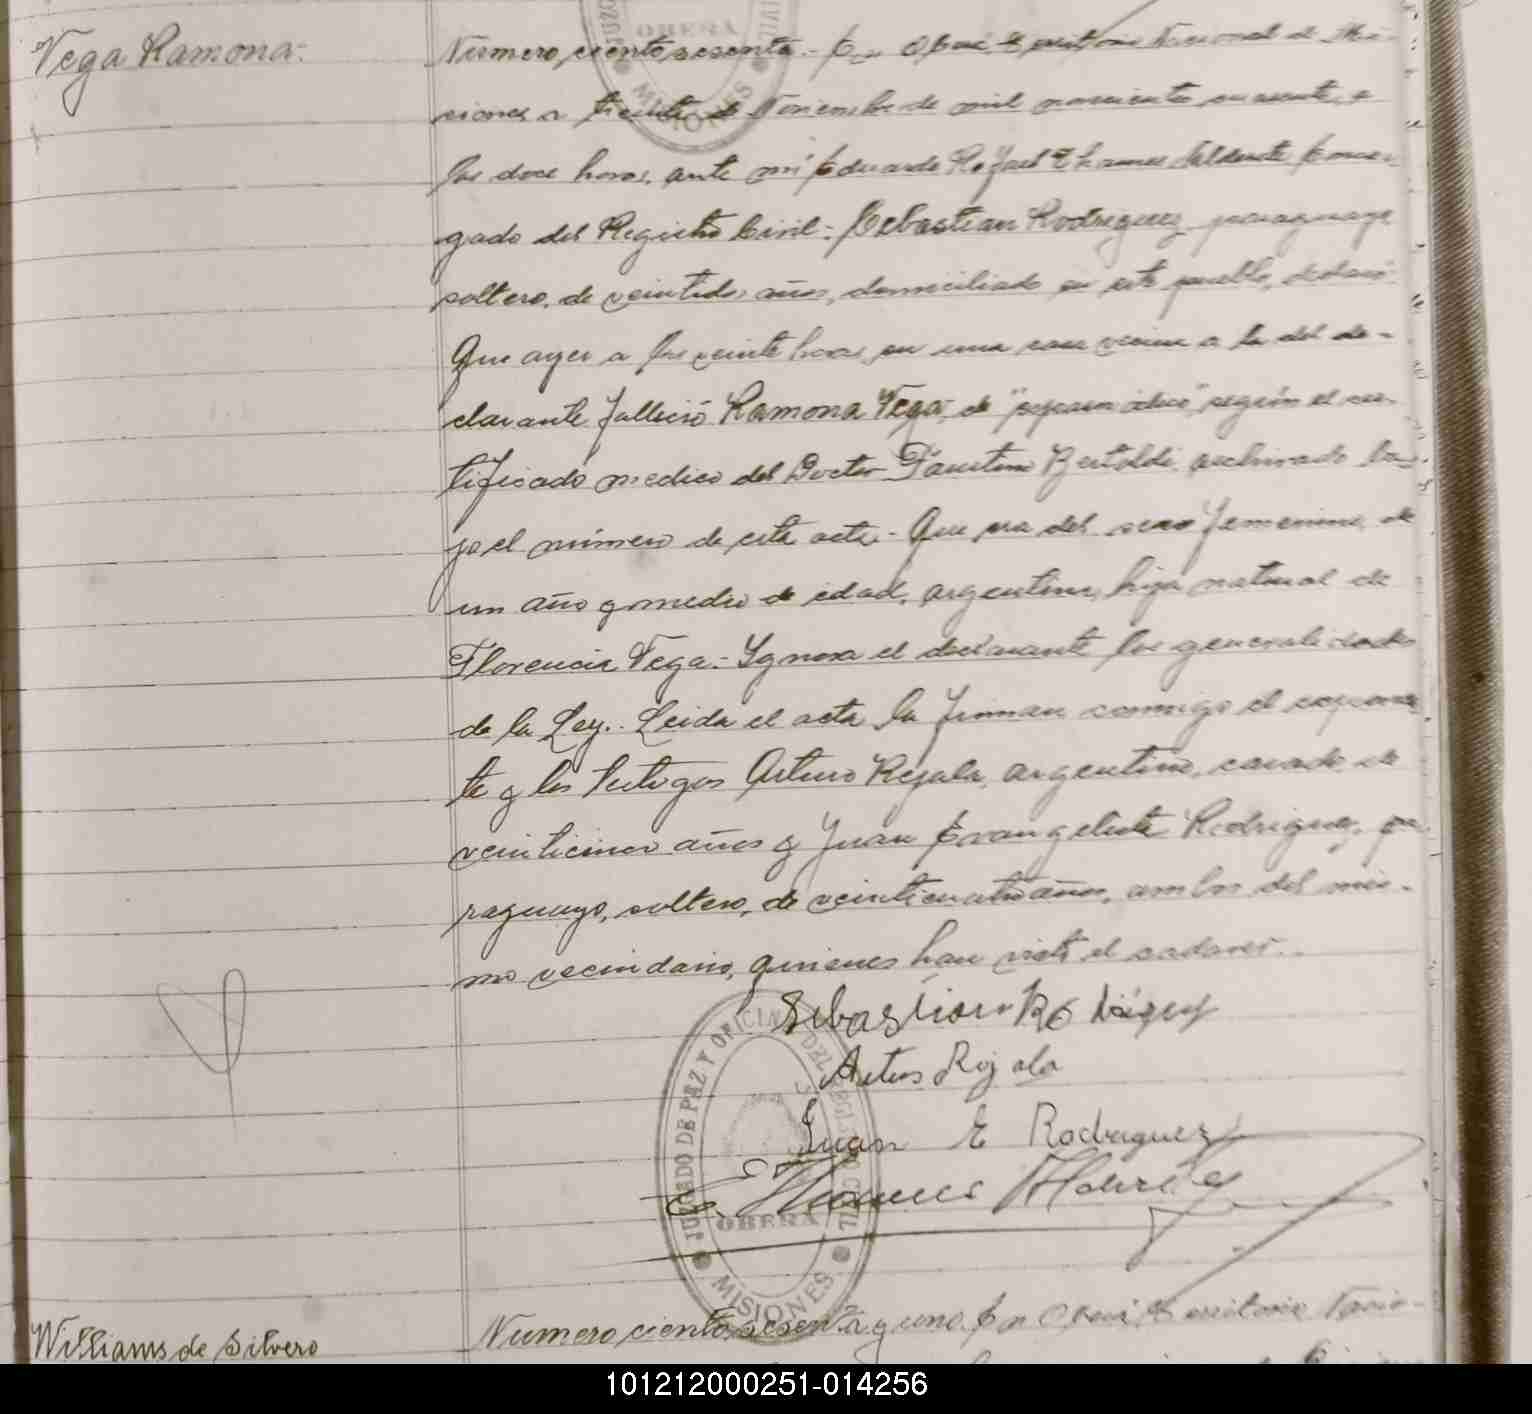 Vega Ramona.-
Numero ciento sesenta.- En Oberá Territorio Nacional de Mi-
siones a treinta de Noviembre de mil novecientos cuarenta, a
las doce horas, ante mi Eduardo Rafael Thames Alderete Encar-
gado del Registro Civil: Sebastian Rodriguez paraguayo
soltero, de veintidos años, domiciliado en este pueblo, declaró:
Que ayer a las veinte horas, en una casa vecina a la del de-
clarante falleció Ramona Vega, de según el cer-
tificado medico del Doctor Faustino Bertoldi archivado ba-
jo el número de esta acta.- Que era del sexo femenino, de
un año y medio de edad, argentina, hija natural de
Florencia Vega.- Ygnora el declarante las generalidades
de la Ley.- Leida el acta la firman conmigo el exponen-
te y los testigos Arturo Rejala, argentino, casado, de
veinticinco años y Juan Evangelista Rodriguez, pa-
raguayo, soltero, de veinticuatro años, ambos del mis-
mo vecindario, quienes han visto el cadaver.-
Sebastian Rodriguez
Arturo Rejala
Juan E Rodriguez
E. Thames
JUZGADO DE PAZ Y OFICINA DEL REGISTRO CIVIL
OBERA
MISIONES
Williams de Silvero
Numero ciento sesenta y uno. En Oberá Territorio Nacio-
101212000251-014256